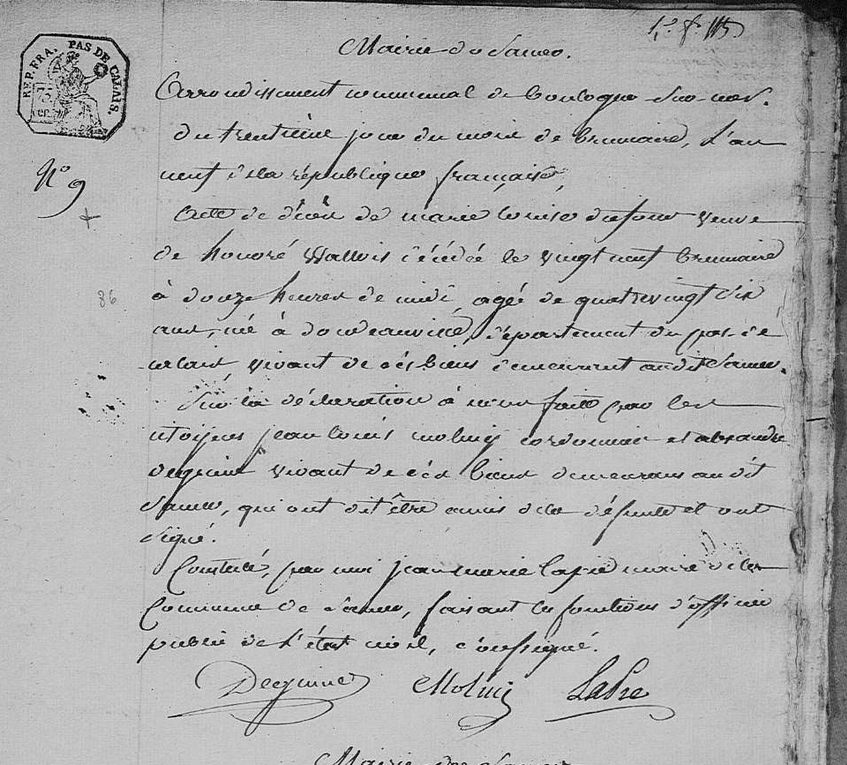 REP. FRA. PAS DE CALAIS.
Mairie de Samer.
Arrondissement communal de boulogne sur mer.
Du trentième jour du mois de brumaire, L'an
neuf dela république française,
N° 9
Acte de décès de marie louise dufour veuve
de honoré Wallois décédée le vingt neuf brumaire
à douze heures de midi, agé de quatrevingt dix
ans, né à doudeauville, département du pas de
calais, vivant de ses biens demeurant audit Samer.
86
Sur la déclaration à nous faite par les
citoyens jean louis moliny cordonnier et alexandre
deguine vivant de ses biens demeurans au dit
Samer, qui ont dit être amis dela défunte et ont
signé.
Constaté, par moi jean marie lapie maire dela
Commune de Samer, faisant les fonctions d'officier
public de l'état civil, soussigné.
Deguine Moliny
Mairie de Samer